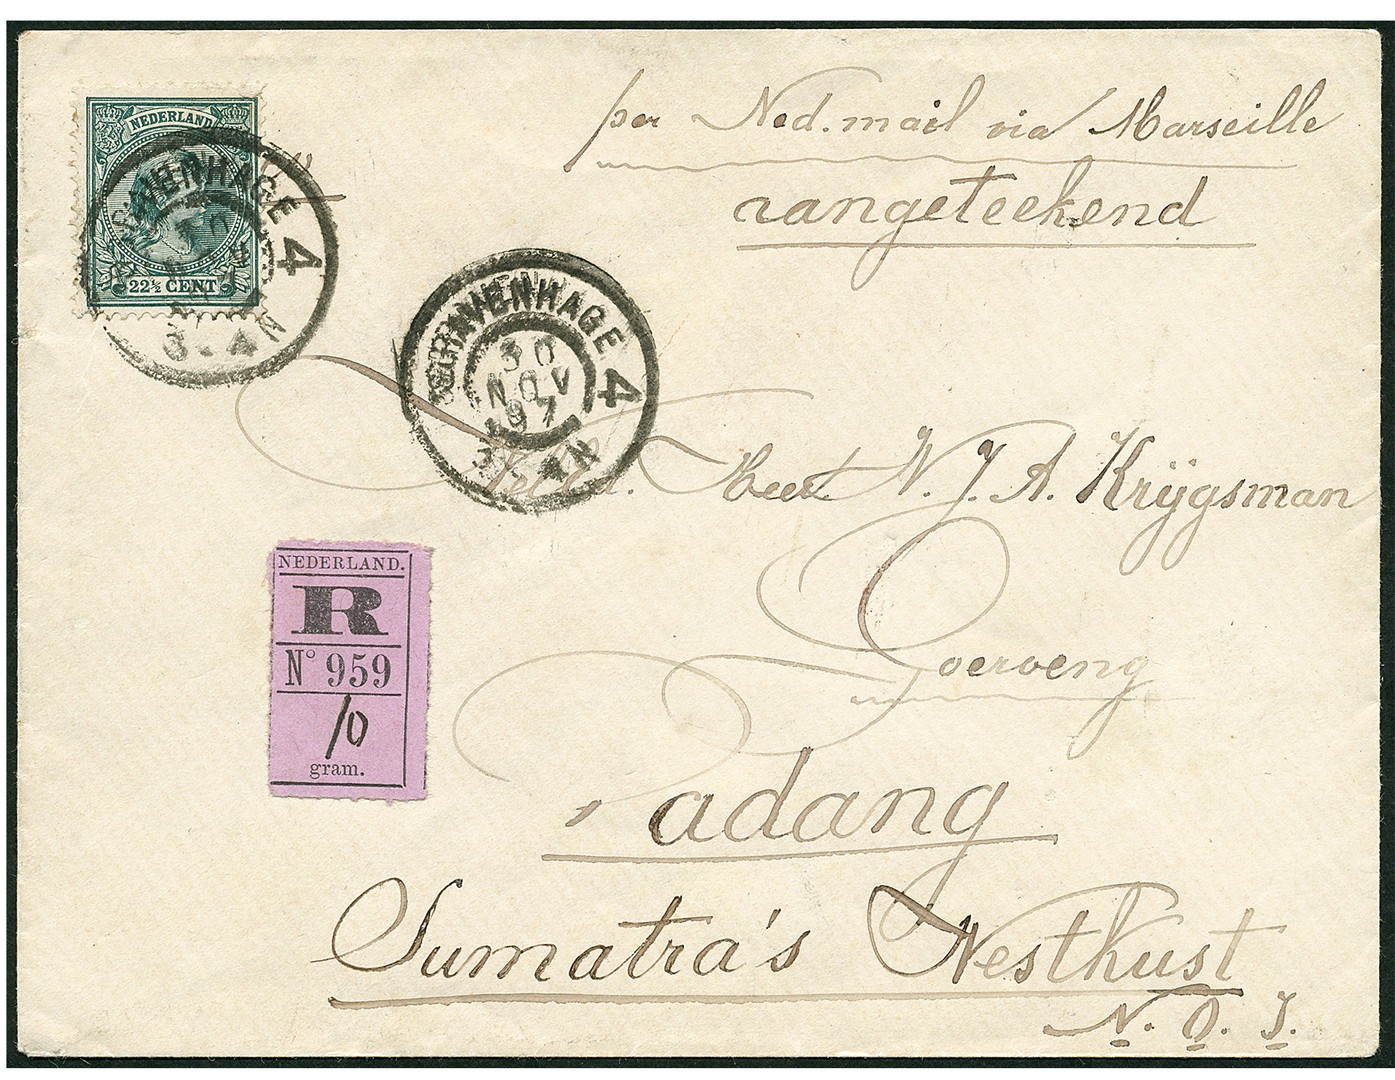 NEDERLAND
22½ CENT
'S GRAVENHAGE 4
3 - 4 N
per Ned. mail via Marseille
aangeteekend
'S GRAVENHAGE 4
30
NOV
97
3 - 4 N
Heer N. J. A. Krijgsman
Goeroeng
Padang
Sumatra's Westkust
N. O. I.
NEDERLAND.
R
N° 959
10
gram.